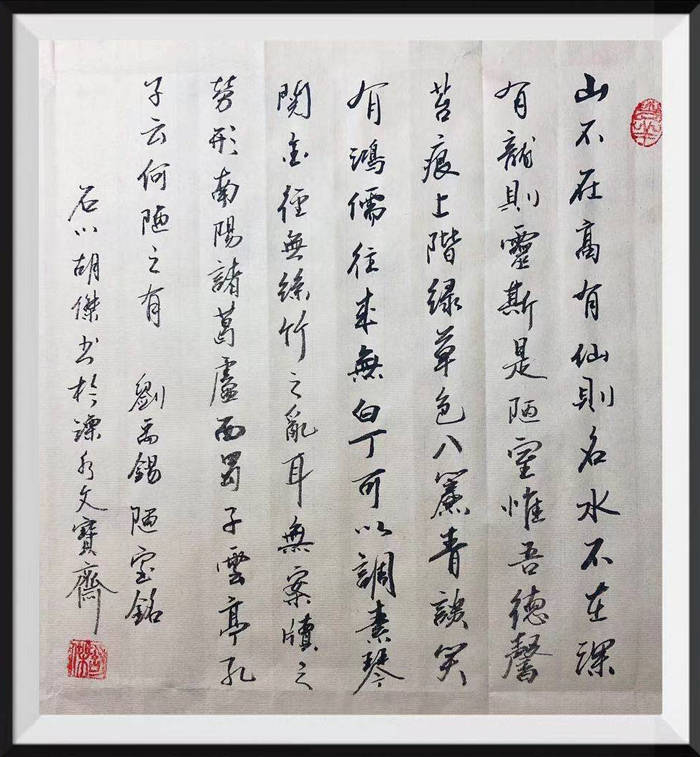 山不在高有仙則名水不在深
有龍則靈斯是陋室惟吾德馨
苔痕上階緑草色入簾青談笑
有鴻儒往來無白丁可以調素琴
閱金徑無絲竹之亂耳無案牘之
勞形南陽諸葛廬西蜀子雲亭孔
子云何陋之有 劉禹錫陋室銘
石川胡傑书於溧水文寶齋